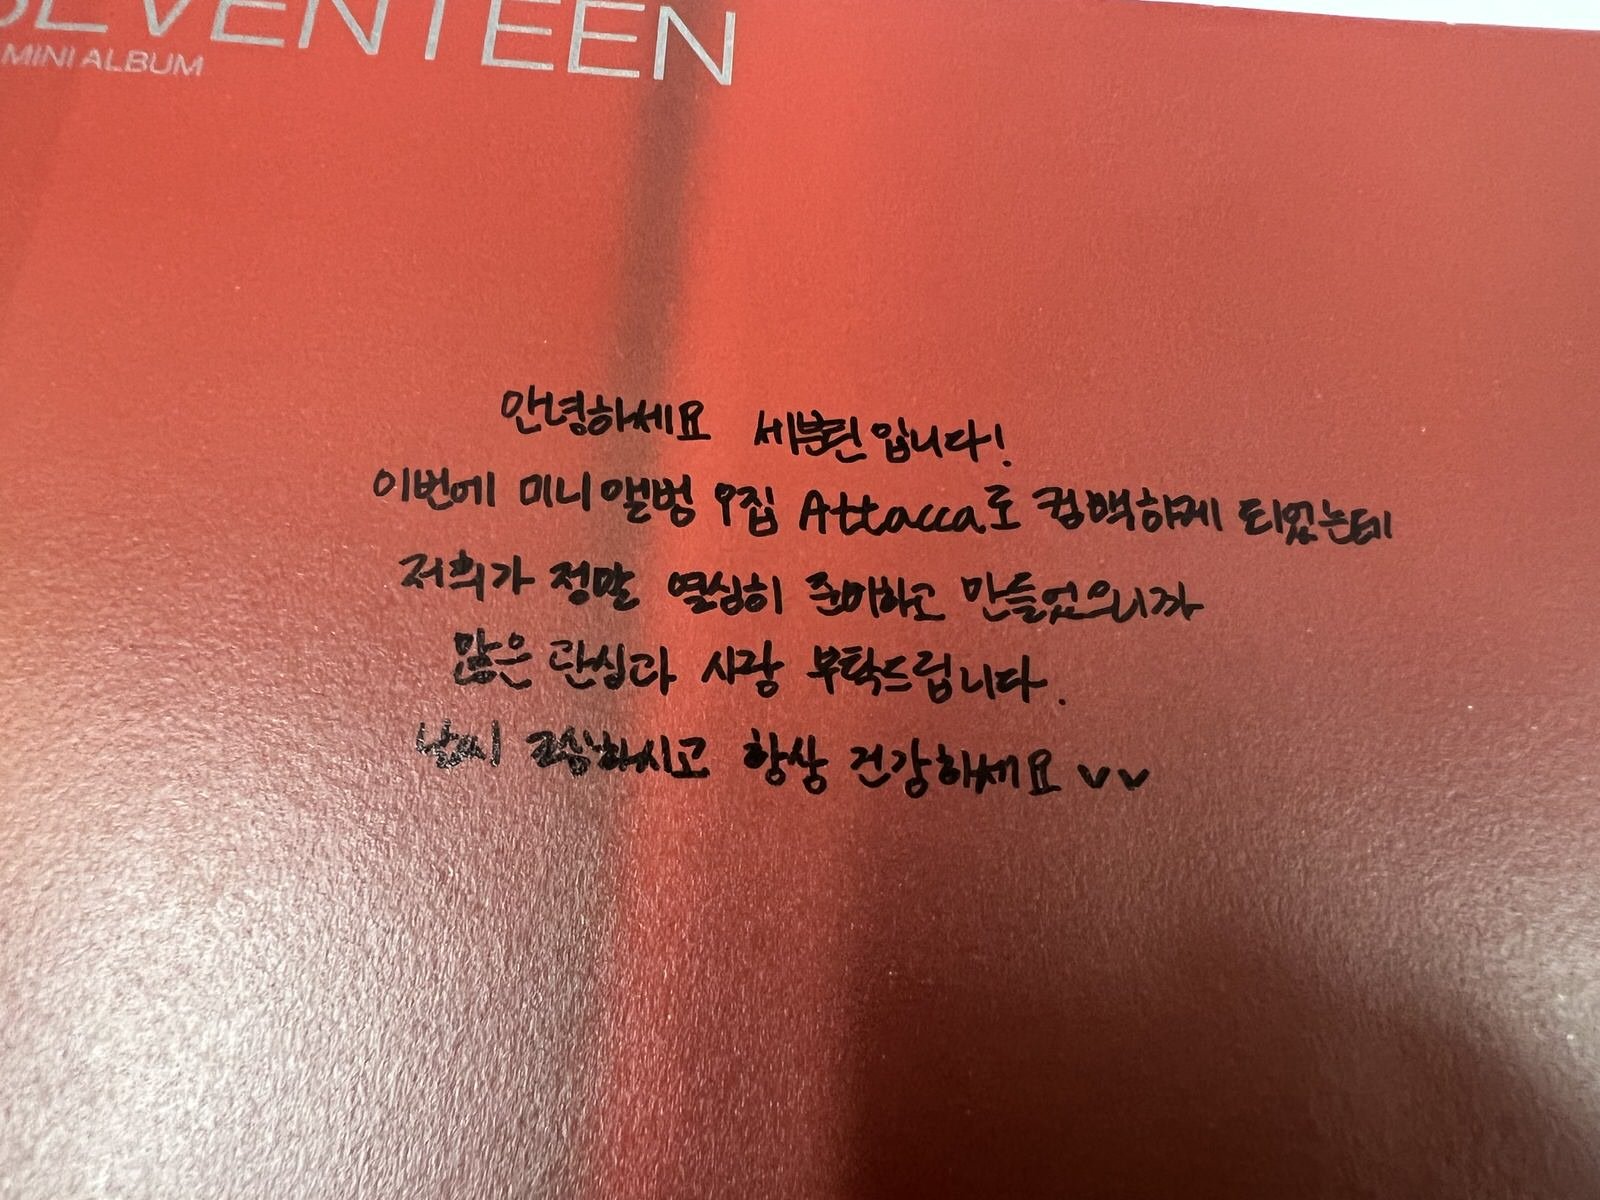 SEVENTEEN
MINI ALBUM
안녕하세요 세븐틴입니다!
이번에 미니앨범 9집 Attacca로 컴백하게 되었는데
저희가 정말 열심히 준비하고 만들었으니까
많은 관심과 사랑 부탁드립니다.
날씨 조심하시고 항상 건강하세요 ♥♥